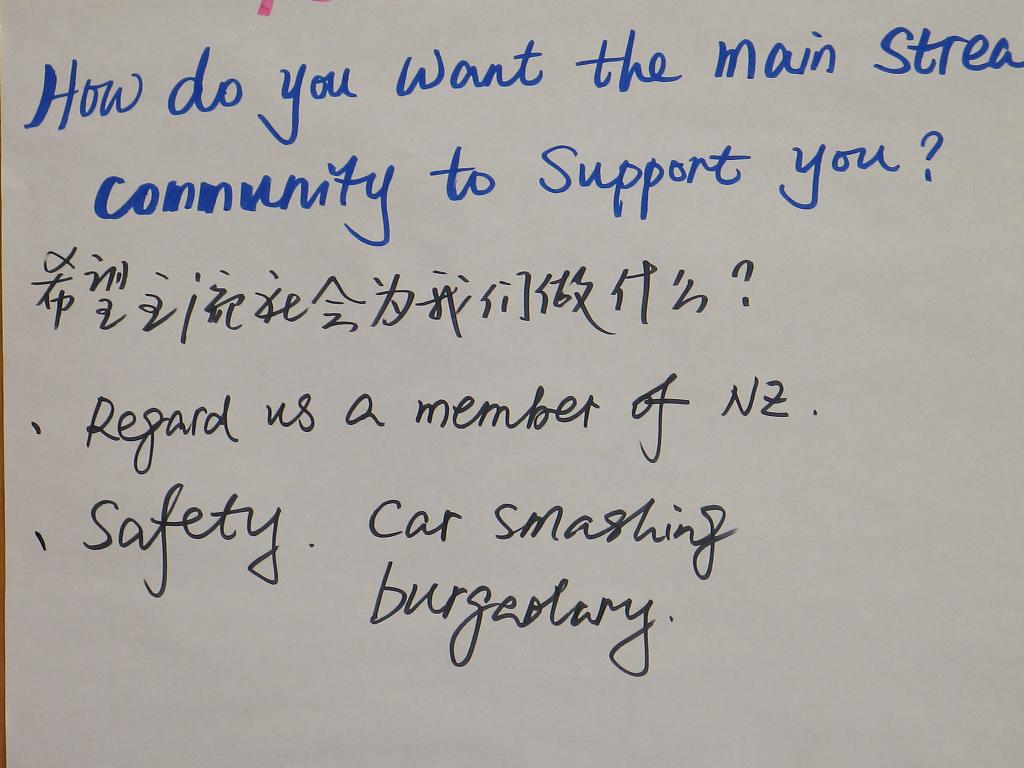 How do you want the main Strea
community to Support you?
希望主流社会为我们做什么?
、Regard us a member of NZ.
、Safety. Car smashing
burgeolary.